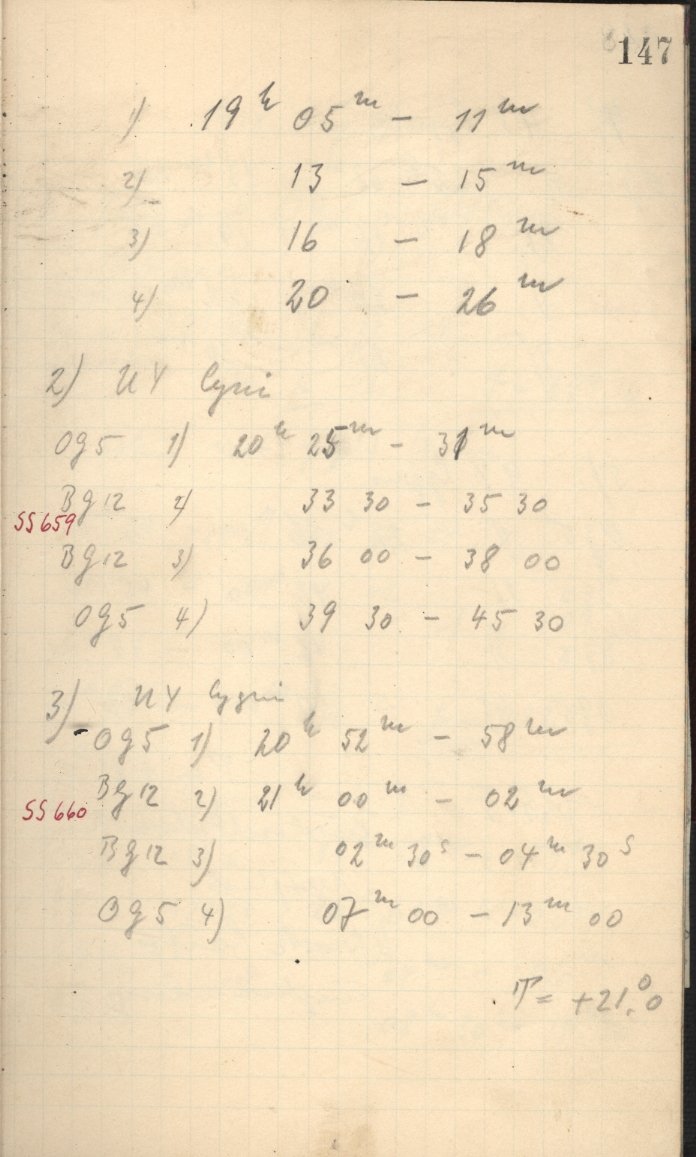 147
1) 19h 05m – 11m
2) 13 – 15m
3) 16 – 18m
4) 20 – 26m
2) UY Cygni
Og5 1) 20h 25m – 31m
Bg12 2) 33 30 – 35 30
SS 659
Bg12 3) 36 00 – 38 00
Og5 4) 39 30 – 45 30
3) UY Cygni
Og5 1) 20h 52m – 58m
Bg12 2) 21h 00m – 02m
SS 660
Bg12 3) 02m 30s – 04m 30s
Og5 4) 07m 00 – 13m 00
T = +21.°0